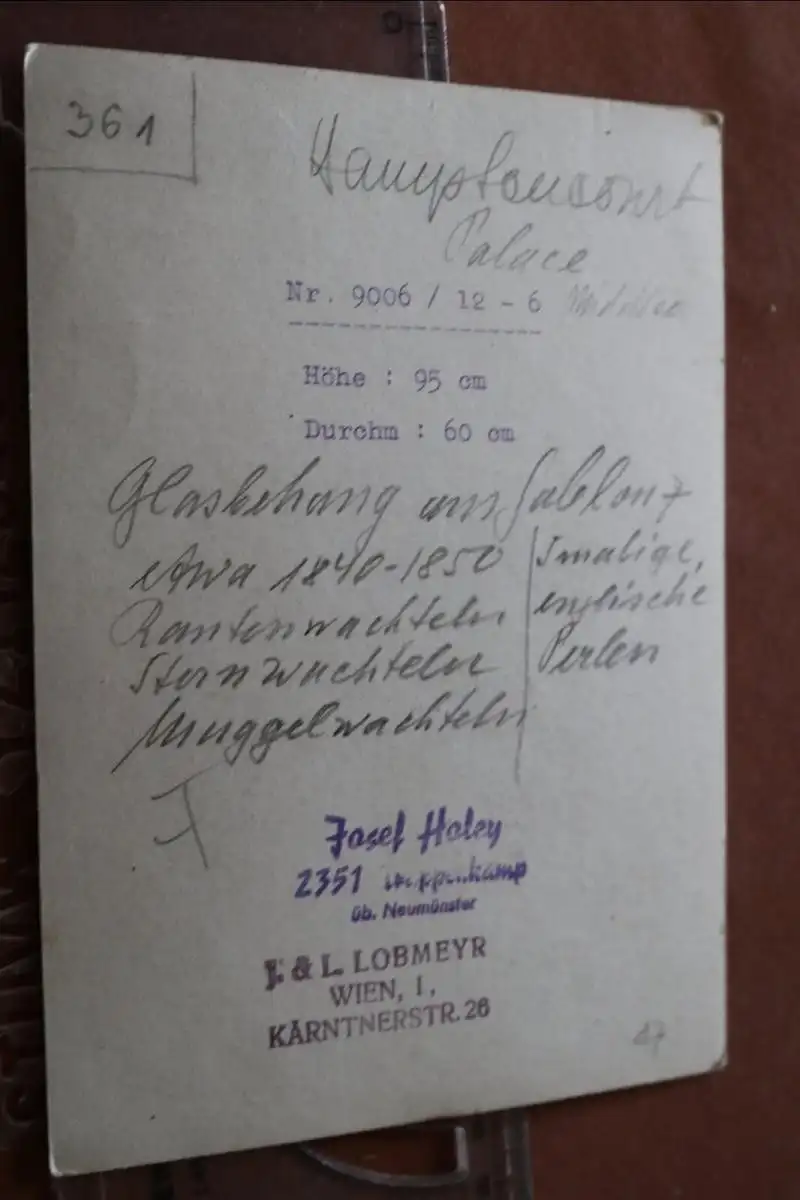 361
Hamptoncourt
Palace
Nr. 9006 / 12 - 6
Höhe : 95 cm
Durchm : 60 cm
Glasbehang aus Gablonz
etwa 1840-1850
Kantenwachteln
Sternwachteln
Muggelwachteln
englische
Perlen
Josef Haley
2351
üb. Neumünster
J. & L. LOBMEYR
WIEN, I,
KÄRNTNERSTR. 26